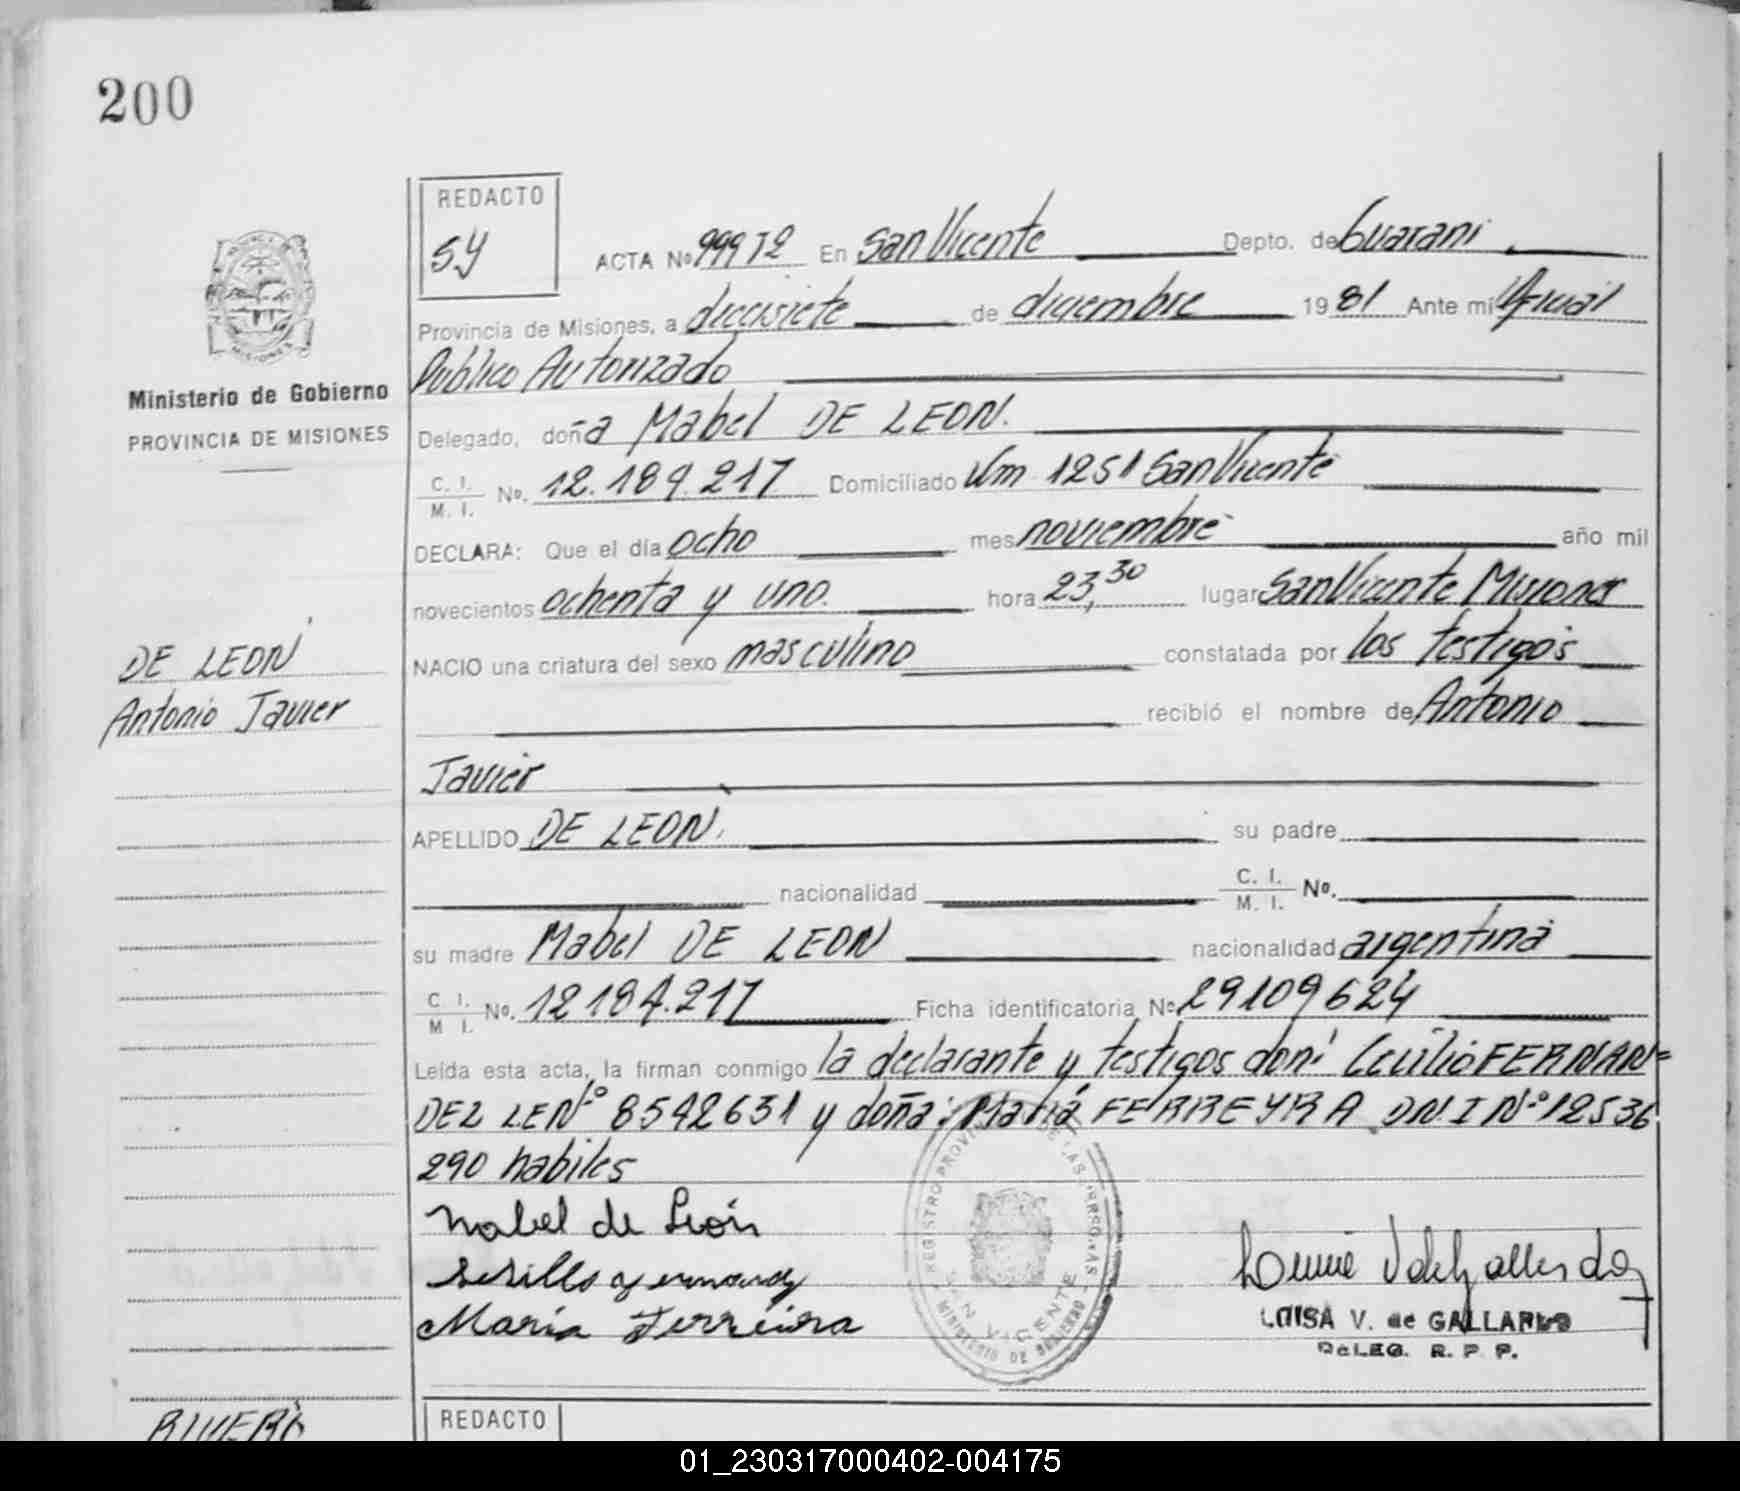 200
REDACTO
SY
ACTA No 99972 En San Vicente Depto. de Guarani
Provincia de Misiones, a diecisiete de diciembre 1981 Ante mi Oficial
Público Autorizado
Ministerio de Gobierno
PROVINCIA DE MISIONES
Delegado, doña Mabel DE LEON.
C. I.
M. I. No. 12.184.217 Domiciliado Km 1251 San Vicente
DECLARA: Que el día ocho mes noviembre año mil
novecientos ochenta y uno. hora 23,30 lugar San Vicente Misiones
NACIO una criatura del sexo masculino constatada por los testigos
DE LEON
Antonio Javier
recibió el nombre de Antonio
Javier
APELLIDO DE LEON. su padre
nacionalidad C. I.
M. I. No.
su madre Mabel DE LEON nacionalidad argentina
C. I.
M I. No. 12184.217 Ficha identificatoria No 29109624
Leída esta acta, la firman conmigo la declarante y testigos don: Cecilio FERNAN=
DEZ LEN° 8542631 y doña: María FERREYRA DN.I N° 12536
290 habiles
Mabel de León
María Ferreira
REGISTRO PROVINCIAL DE LAS PERSONAS
SAN VICENTE
MINISTERIO DE GOBIERNO
LUISA V. de GALLARDO
DELEG. R. P. P.
RIVERO
REDACTO
01_230317000402-004175